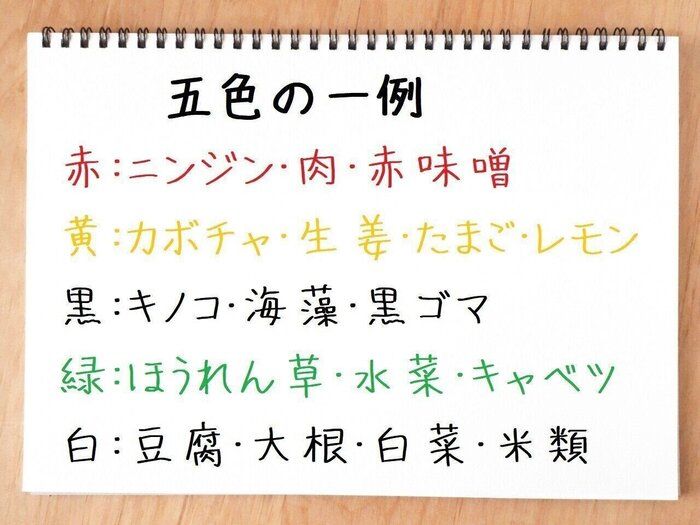 五色の一例
赤:ニンジン・肉・赤味噌
黄:カボチャ・生姜・たまご・レモン
黒:キノコ・海藻・黒ゴマ
緑:ほうれん草・水菜・キャベツ
白:豆腐・大根・白菜・米類